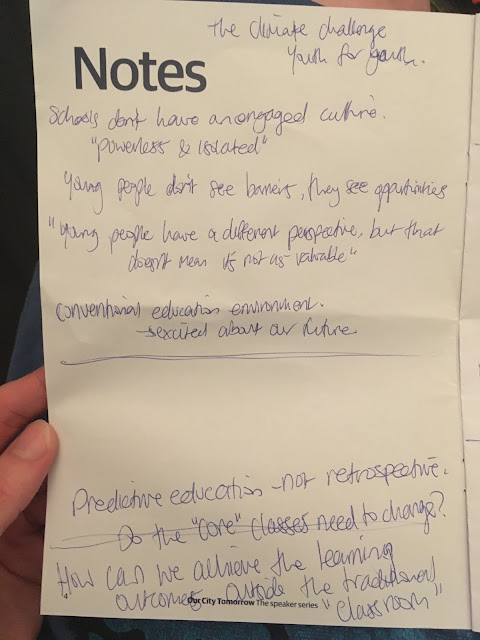 The climate challenge
Youth for youth.
Notes
Schools don't have an engaged culture.
"Powerless & isolated"
Young people don't see barriers, they see opportunities
"Young people have a different perspective, but that
doesn't mean it's not as valuable"
Conventional education environment.
→ excited about our future
Predictive education - not retrospective.
Do the "core" classes need to change?
How can we achieve the learning
outcomes outside the traditional
"classroom"
Our City Tomorrow The speaker series